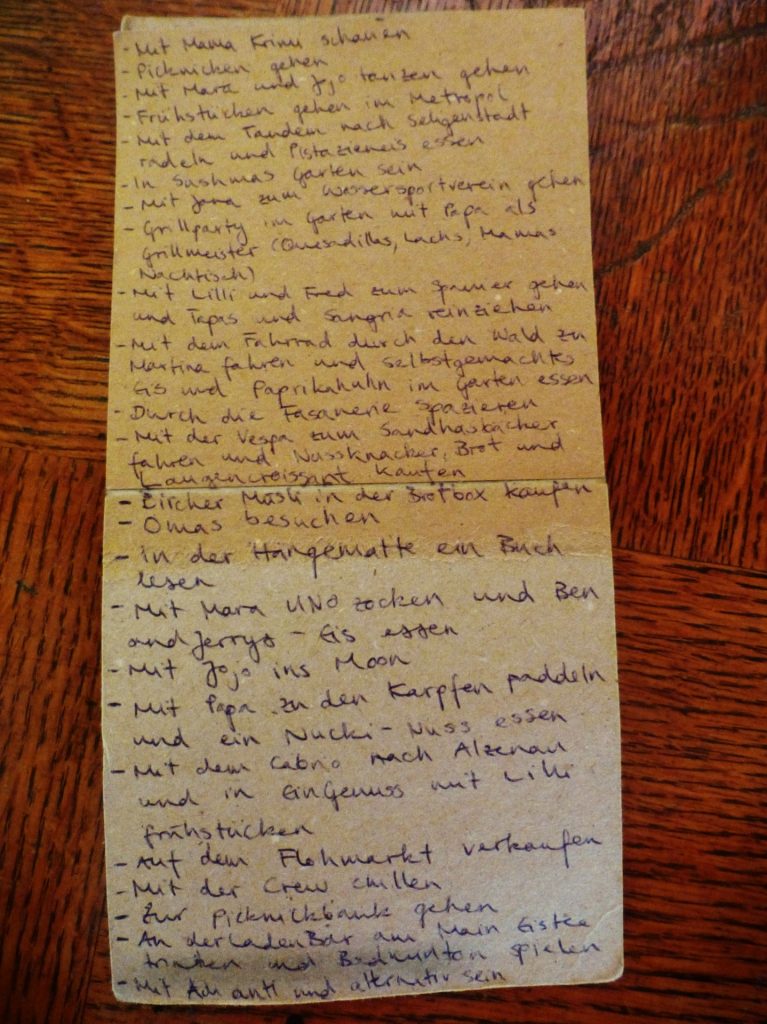 - Mit Mama Krimi schauen
- Picknicken gehen
- Mit Mara und Jojo tanzen gehen
- Frühstücken gehen im Metropol
- Mit dem Tandem nach Seligenstadt
radeln und Pistazieneis essen
- In Sushmas Garten sein
- Mit Jana zum Wassersportverein gehen
- Grillparty im Garten mit Papa als
Grillmeister (Quesadillas, Lachs, Mamas
Nachtisch)
- Mit Lilli und Fred zum Spanier gehen
und Tapas und Sangria reinziehen
- Mit dem Fahrrad durch den Wald zu
Martina fahren und selbstgemachtes
Eis und Paprikahuhn im Garten essen
- Durch die Fasanerie spazieren
- Mit der Vespa zum Sandhasbäcker
fahren und Nussknacker, Brot und
Laugencroissant kaufen
- Bircher Müsli in der Brotbox kaufen
- Omas besuchen
- in der Hängematte ein Buch
lesen
- Mit Mara UNO zocken und Ben
and Jerrys - Eis essen
- Mit Jojo ins Moon
- Mit Papa zu den Karpfen paddeln
und ein Nucki-Nuss essen
- Mit dem Cabrio nach Alzenau
und in EinGenuss mit Lilli
frühstücken
- Auf dem Flohmarkt verkaufen
- Mit der Crew chillen
- Zur Picknickbank gehen
- An der LadenBar am Main Eistee
trinken und Badminton spielen
- Mit anti und alternativ sein